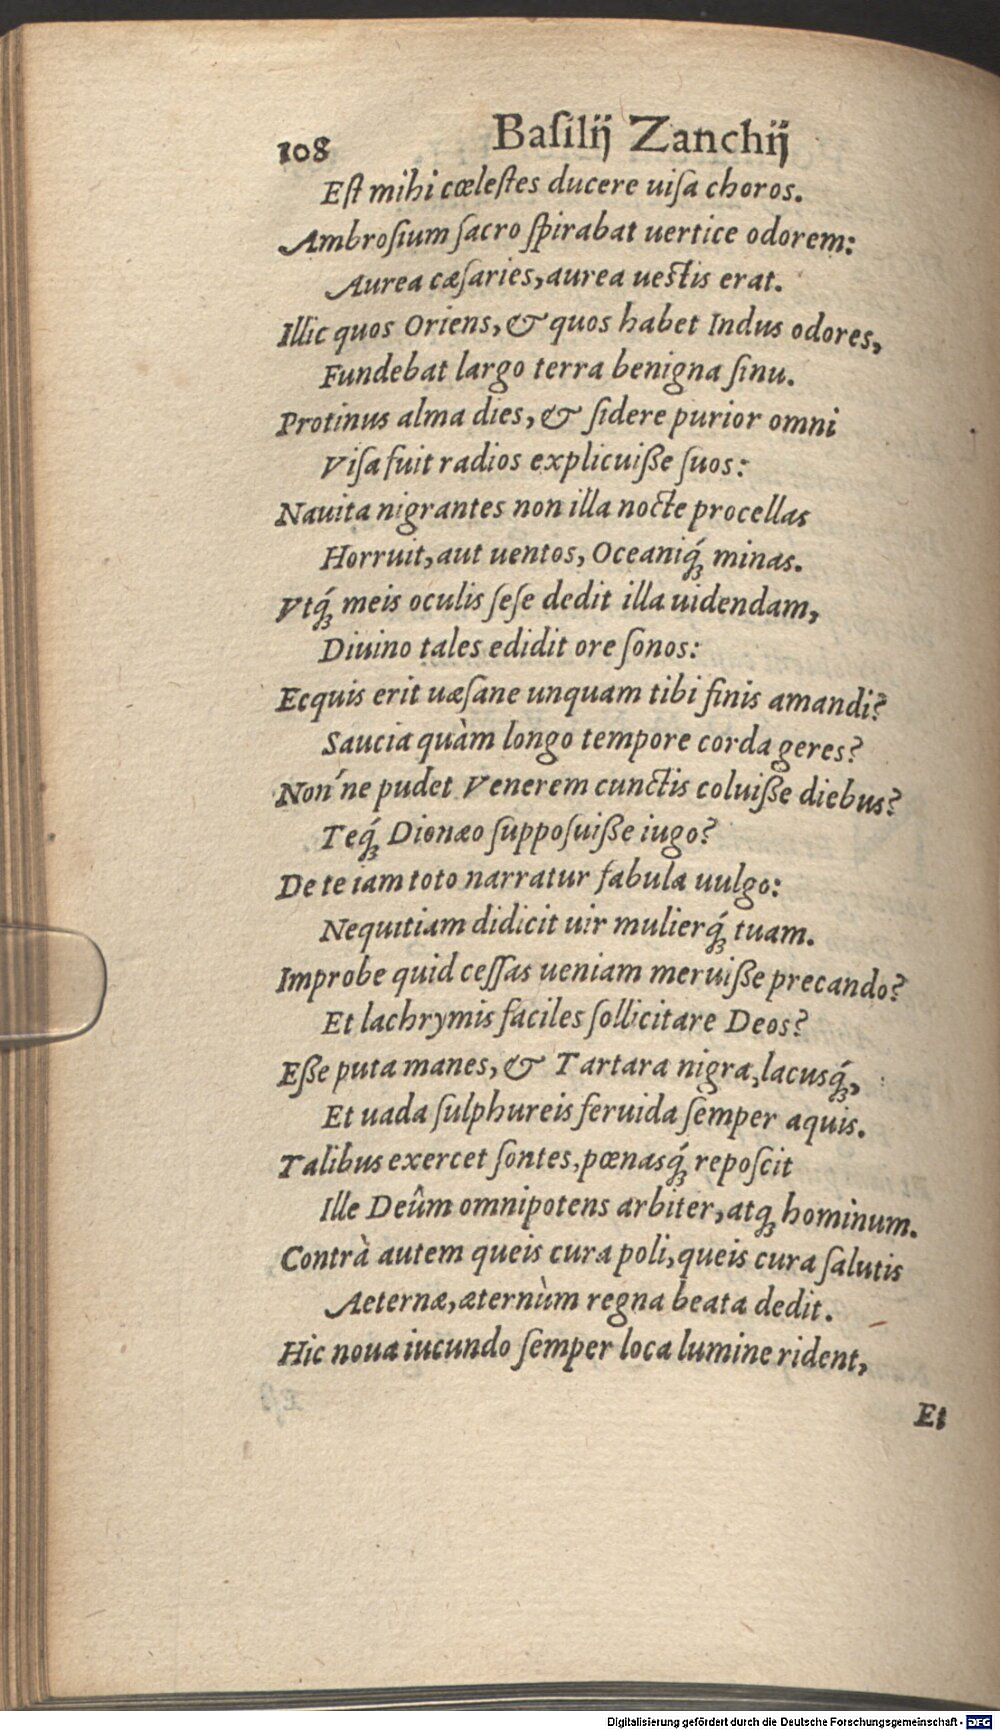 108 Baſilij Zanchij
Eſt mihi cœleſtes ducere uiſa choros.
Ambroſium ſacro ſpirabat uertice odorem:
Aurea cæſaries, aurea ueſtis erat.
Illic quos Oriens, & quos habet Indus odores,
Fundebat largo terra benigna ſinu.
Protinus alma dies, & ſidere purior omni
Viſa fuit radios explicuiße ſuos:
Nauita nigrantes non illa nocte procellas
Horruit, aut uentos, Oceaniq́; minas.
Vtq́; meis oculis ſeſe dedit illa uidendam,
Diuino tales edidit ore ſonos:
Ecquis erit uæſane unquam tibi finis amandi?
Saucia quàm longo tempore corda geres?
Non'ne pudet Venerem cunctis coluiße diebus?
Teq́; Dionæo ſuppoſuiße iugo?
De te iam toto narratur fabula uulgo:
Nequitiam didicit uir mulierq́; tuam.
Improbe quid ceſſas ueniam meruiße precando?
Et lachrymis faciles ſollicitare Deos?
Eße puta manes, & Tartara nigra, lacusq́;,
Et uada ſulphureis feruida ſemper aquis.
Talibus exercet ſontes, pœnasq́; repoſcit
Ille Deûm omnipotens arbiter, atq; hominum.
Contrà autem queis cura poli, queis cura ſalutis
Aeternæ, æternùm regna beata dedit.
Hic noua iucundo ſemper loca lumine rident,
Et
Digitalisierung gefördert durch die Deutsche Forschungsgemeinschaft - DFG